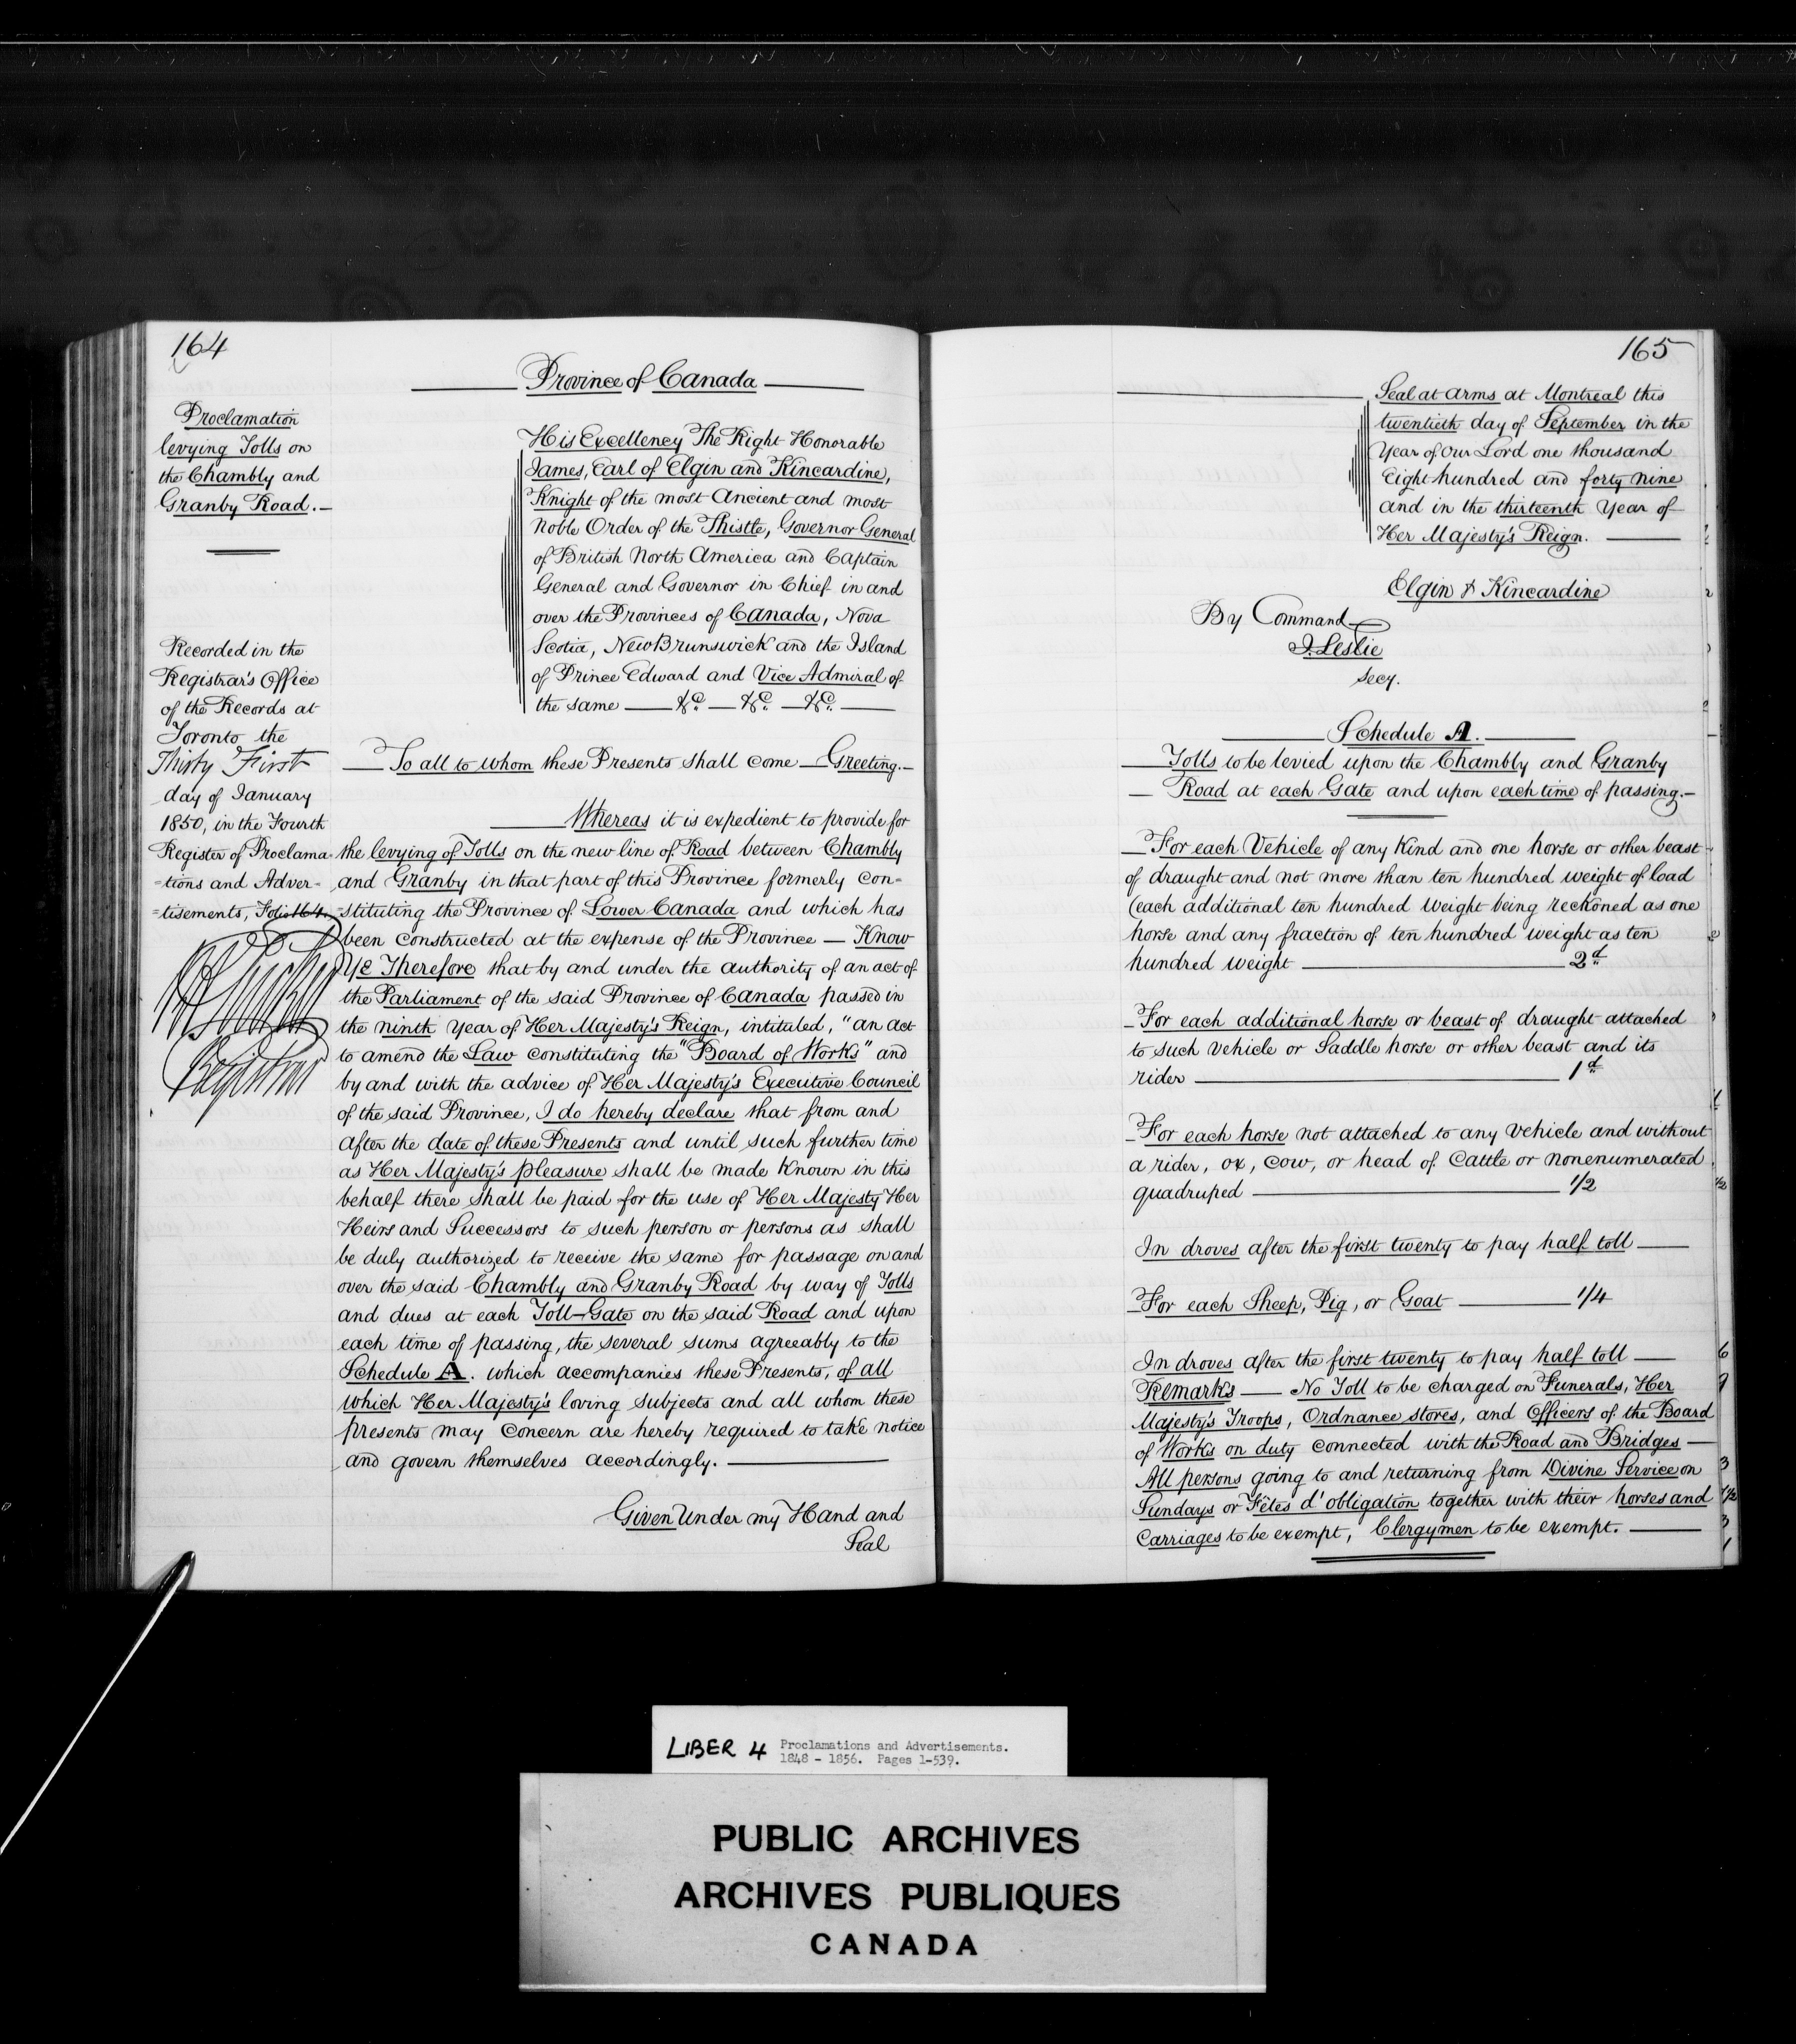 164
Province of Canada
Proclamation
levying Tolls on
the Chambly and
Granby Road.
Recorded in the
Registrar's Office
of the Records at
Toronto the
Thirty First
day of January
1850, in the Fourth
Register of Proclama-
-tions and Adver-
-tisements, Folio 164.
Registrar
His Excellency The Right Honorable
James, Earl of Elgin and Kincardine,
Knight of the most Ancient and most
Noble Order of the Thistle, Governor General
of British North America and Captain
General and Governor in Chief in and
over the Provinces of Canada, Nova
Scotia, New Brunswick and the Island
of Prince Edward and Vice Admiral of
the same — &c. — &c. — &c. —
To all to whom these Presents shall come — Greeting. —
Whereas it is expedient to provide for
the levying of Tolls on the new line of Road between Chambly
and Granby in that part of this Province formerly con=
=stituting the Province of Lower Canada and which has
been constructed at the expense of the Province — Know
Ye Therefore that by and under the authority of an act of
the Parliament of the said Province of Canada passed in
the ninth Year of Her Majesty's Reign, intituled, "an act
to amend the Law constituting the "Board of Works" and
by and with the advice of Her Majesty's Executive Council
of the said Province, I do hereby declare that from and
after the date of these Presents and until such further time
as Her Majesty's pleasure shall be made Known in this
behalf there shall be paid for the use of Her Majesty Her
Heirs and Successors to such person or persons as shall
be duly authorized to receive the same for passage on and
over the said Chambly and Granby Road by way of Tolls
and dues at each Toll-Gate on the said Road and upon
each time of passing, the several sums agreeably to the
Schedule A. which accompanies these Presents, of all
which Her Majesty's loving subjects and all whom these
presents may concern are hereby required to take notice
and govern themselves accordingly. —
Given Under my Hand and
Seal
165
Seal at arms at Montreal this
twentieth day of September in the
Year of Our Lord one thousand
Eight hundred and forty nine
and in the thirteenth Year of
Her Majesty's Reign. —
Elgin & Kincardine
By Command
J. Leslie
Secy.
Schedule A.
Tolls to be levied upon the Chambly and Granby
Road at each Gate and upon each time of passing.—
For each Vehicle of any Kind and one horse or other beast
of draught and not more than ten hundred weight of load
(each additional ten hundred weight being reckoned as one
horse and any fraction of ten hundred weight as ten
hundred weight — 2d
For each additional horse or beast of draught attached
to such vehicle or Saddle horse or other beast and its
rider — 1d
For each horse not attached to any vehicle and without
a rider, ox, cow, or head of Cattle or nonenumerated
quadruped — 1/2
In droves after the first twenty to pay half toll —
For each Sheep, Pig, or Goat — 1/4
In droves after the first twenty to pay half toll —
Remarks — No Toll to be charged on Funerals, Her
Majesty's Troops, Ordnance stores, and Officers of the Board
of Works on duty connected with the Road and Bridges —
All persons going to and returning from Divine Service on
Sundays or Fêtes d'obligation together with their horses and
Carriages to be exempt, Clergymen to be exempt. —
LIBER 4
Proclamations and Advertisements.
1848 - 1856. Pages 1-539.
PUBLIC ARCHIVES
ARCHIVES PUBLIQUES
CANADA